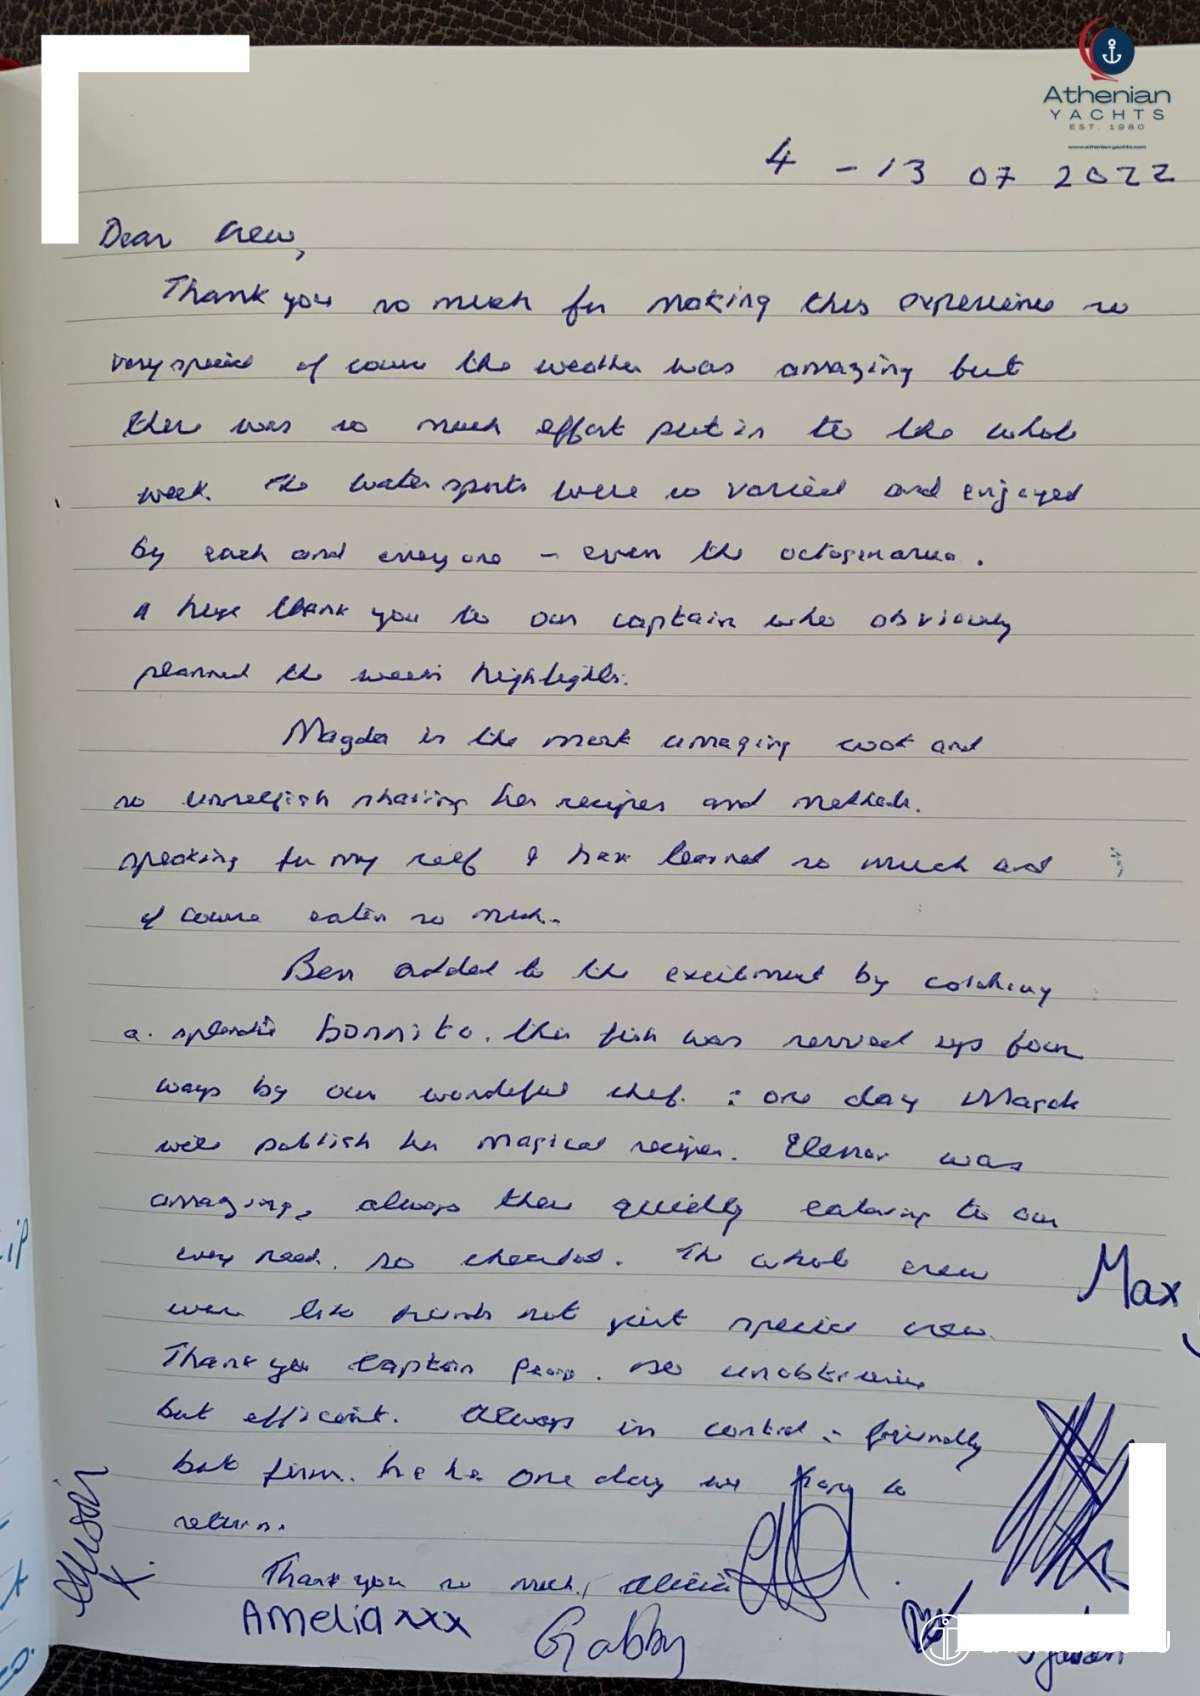 Athenian
YACHTS
EST. 1980
www.athenian-yachts.com
4 - 13 07 2022
Dear Crew,
Thank you so much for making this experience so
very special of course the weather was amazing but
there was so much effort put in to the whole
week. The water sports were so varied and enjoyed
by each and everyone - even the
A huge thank you to our captain who obviously
planned the weeks highlights.
Magda is the most amazing cook and
so unselfish sharing her recipes and methods.
speaking for my self I have learned so much and
of course eaten so much.
Ben added to the excitement by catching
a splendid bonnito. this fish was served up four
ways by our wonderful chef. : one day Magda
will publish her magical recipes. Elenor was
amazing, always there quietly catering to our
every need. so cheerful. The whole crew
were like friends not just special crew.
Thank you Captain so
but efficient. Always in control - friendly
but firm. one day we hope to
return.
Thank you so much, Alicia
Max
Allison x
Amelia xxx
Gabby